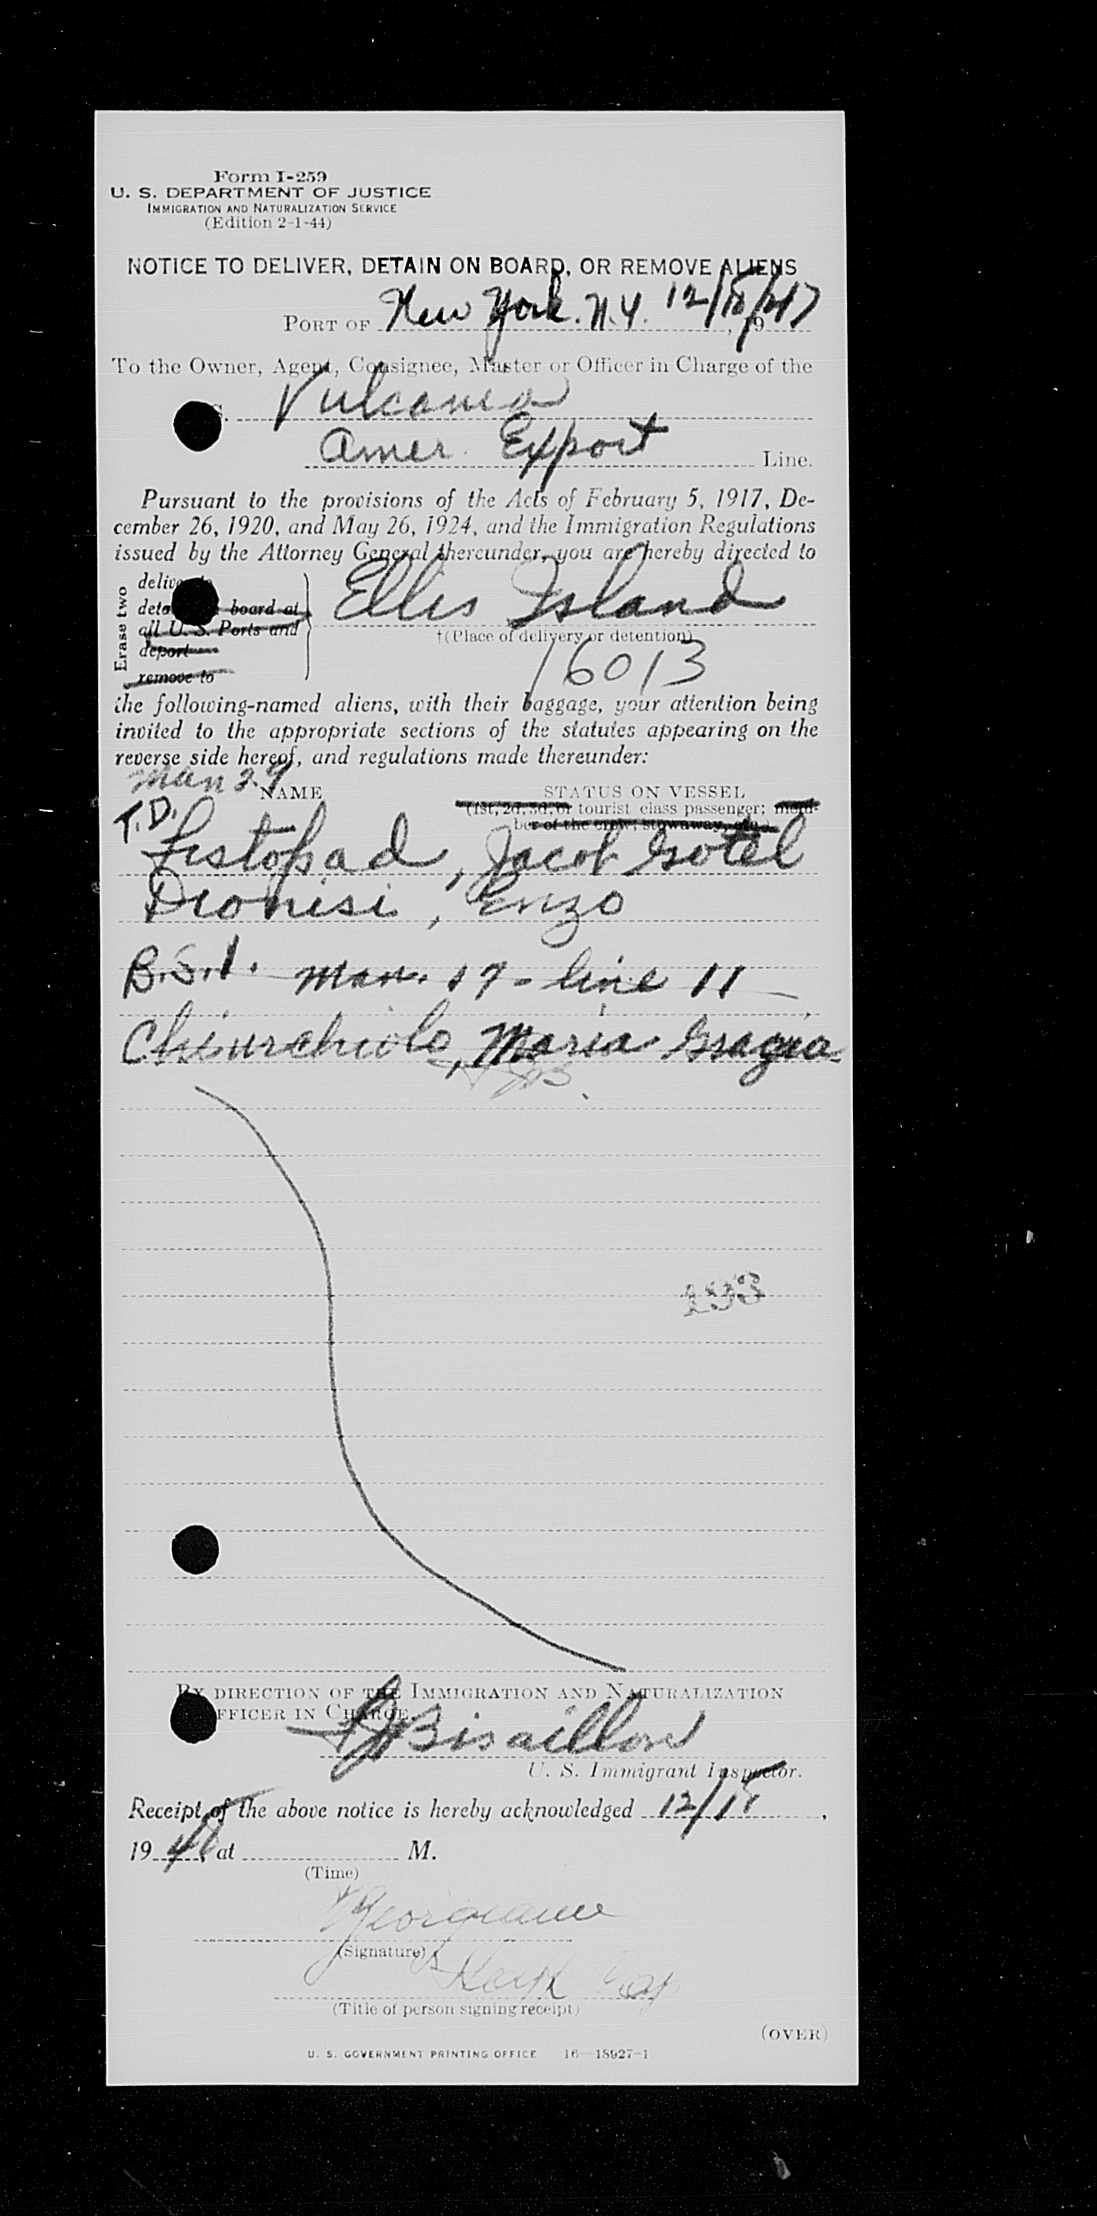 Form I-259
U. S. DEPARTMENT OF JUSTICE
IMMIGRATION AND NATURALIZATION SERVICE
(Edition 2-1-44)
NOTICE TO DELIVER, DETAIN ON BOARD, OR REMOVE ALIENS
PORT OF New York. N.Y. 12/18/47
To the Owner, Agent, Consignee, Master or Officer in Charge of the
S. Vulcania
Amer. Export Line.
Pursuant to the provisions of the Acts of February 5, 1917, De-
cember 26, 1920, and May 26, 1924, and the Immigration Regulations
issued by the Attorney General thereunder, you are hereby directed to
Erase two
deliver to
detain on board at
all U. S. Ports and
deport
remove to
Ellis Island
†(Place of delivery or detention)
16013
the following-named aliens, with their baggage, your attention being
invited to the appropriate sections of the statutes appearing on the
reverse side hereof, and regulations made thereunder:
man 29
NAME STATUS ON VESSEL
(1st, 2d, 3d, or tourist class passenger; mem-
ber of the crew; stowaway, etc.)
T.D.
Listopad, Jacob Gotel
Dionisi, Enzo
B.S.I. man. 17 - line 11
Chiurchiolo, Maria Grazia
133
BY DIRECTION OF THE IMMIGRATION AND NATURALIZATION
OFFICER IN CHARGE.
Bisaillon
U. S. Immigrant Inspector.
Receipt of the above notice is hereby acknowledged 12/18,
19 at M.
(Time)
(Signature)
(Title of person signing receipt)
(OVER)
U. S. GOVERNMENT PRINTING OFFICE 16—18927-1